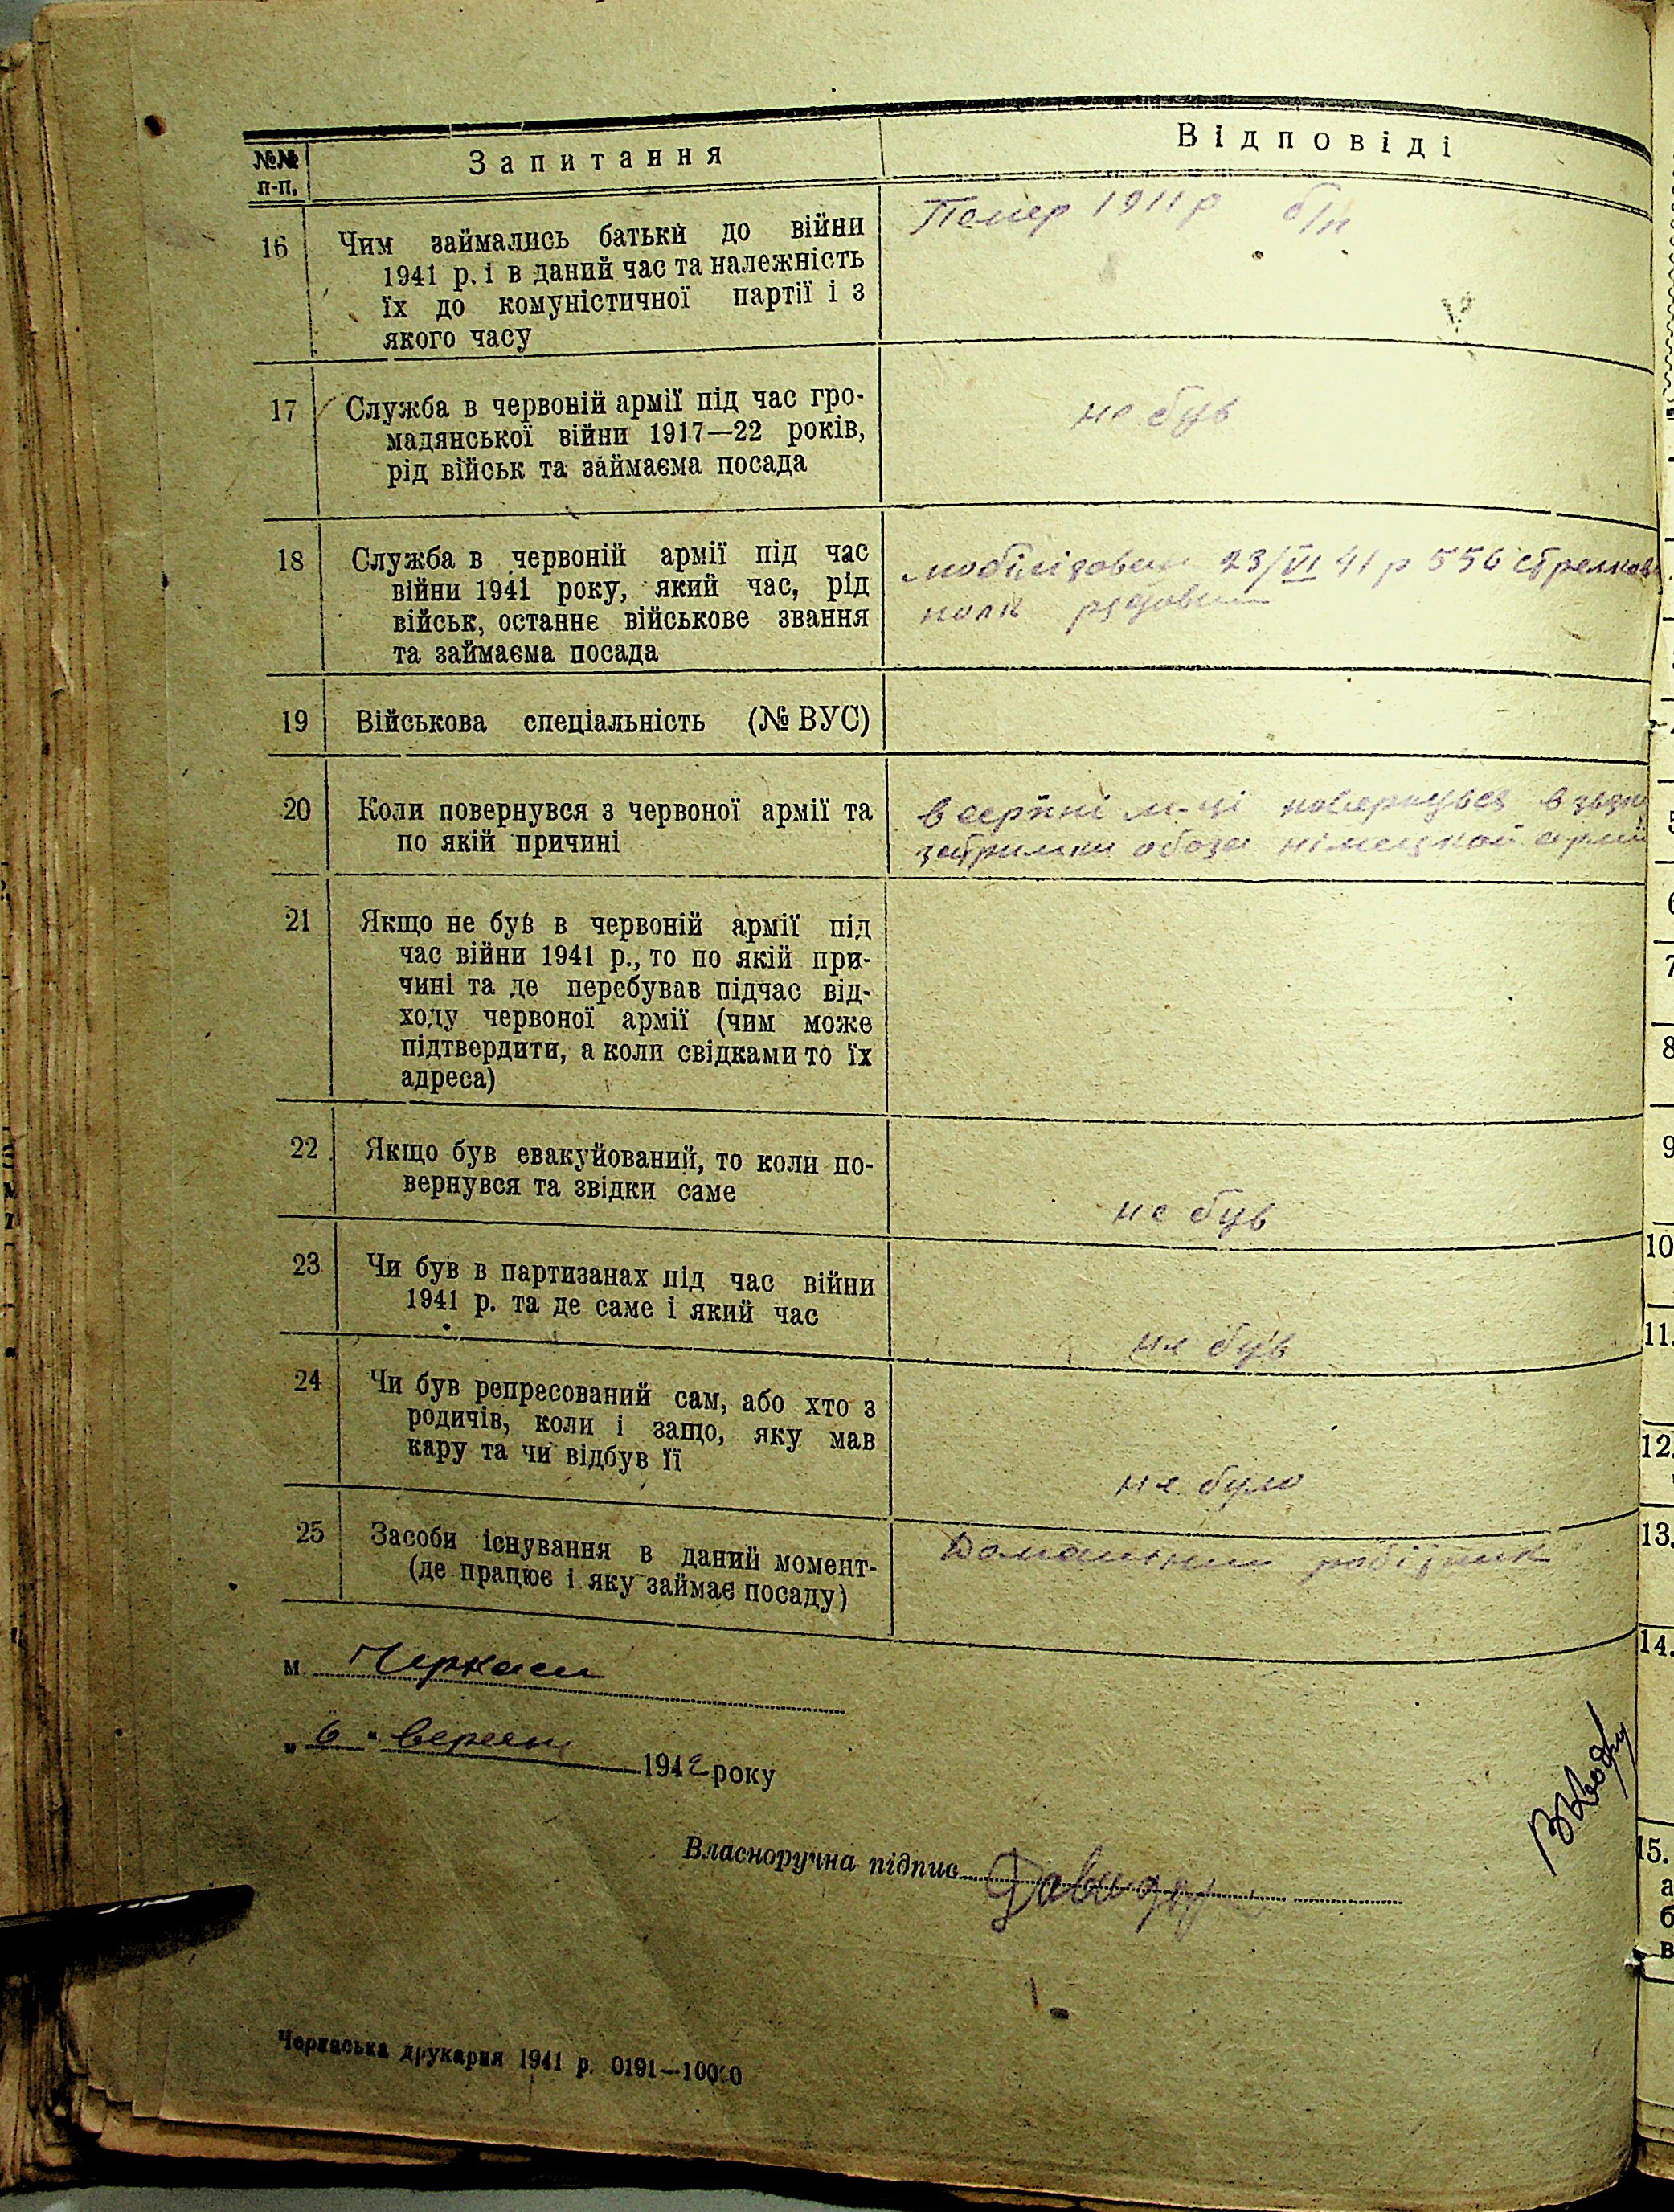 №№ п-п.
Запитання
Відповіді
16
Чим займались батьки до війни
1941 р. і в даний час та належність
їх до комуністичної партії і з
якого часу
Помер 1911 р б/п
17
Служба в червоній армії під час гро-
мадянської війни 1917—22 років,
рід військ та займаєма посада
не був
18
Служба в червоній армії під час
війни 1941 року, який час, рід
військ, останнє військове звання
та займаєма посада
мобілізован 23/VI 41 р 556 стрелков
полк рядовим
19
Військова спеціальність (№ ВУС)
20
Коли повернувся з червоної армії та
по якій причині
в серпні м-ці повернувся в звязк
затримки обоза німецкой армії
21
Якщо не був в червоній армії під
час війни 1941 р., то по якій при-
чині та де перебував підчас від-
ходу червоної армії (чим може
підтвердити, а коли свідками то їх
адреса)
22
Якщо був евакуйований, то коли по-
вернувся та звідки саме
не був
23
Чи був в партизанах під час війни
1941 р. та де саме і який час
не був
24
Чи був репресований сам, або хто з
родичів, коли і защо, яку мав
кару та чи відбув її
не було
25
Засоби існування в даний момент-
(де працює і яку займає посаду)
Домашним робітник
м. Черкаси
„ 6 " вересня 1942 року
Власноручна підпис
Черкаська друкарня 1941 р. 0191—10000
6
7
8
9
10
11.
12.
13.
14.
15.
а
б
в